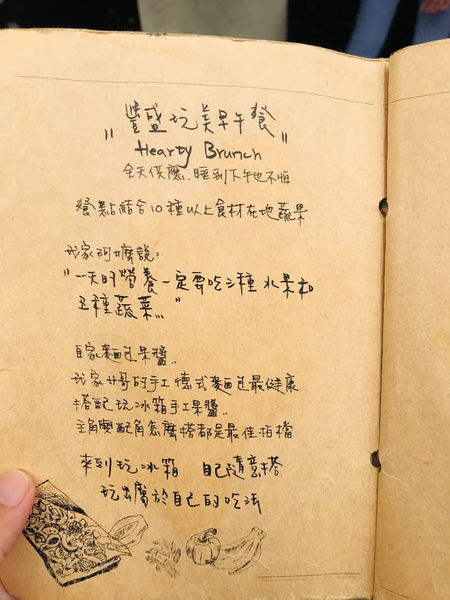 "豐盛玩美早午餐"
Hearty Brunch
全天供應，睡到下午也不悔
餐點結合10種以上食材在地蔬果
我家阿嬤說：
"一天的營養一定要吃三種水果和
五種蔬菜..."
自家麵包果醬..
我家廾哥的手工德式麵包最健康
搭配玩冰箱手工果醬..
主角與配角怎麼搭都是最佳拍檔
來到玩冰箱 自己隨意搭
玩出屬於自己的吃法